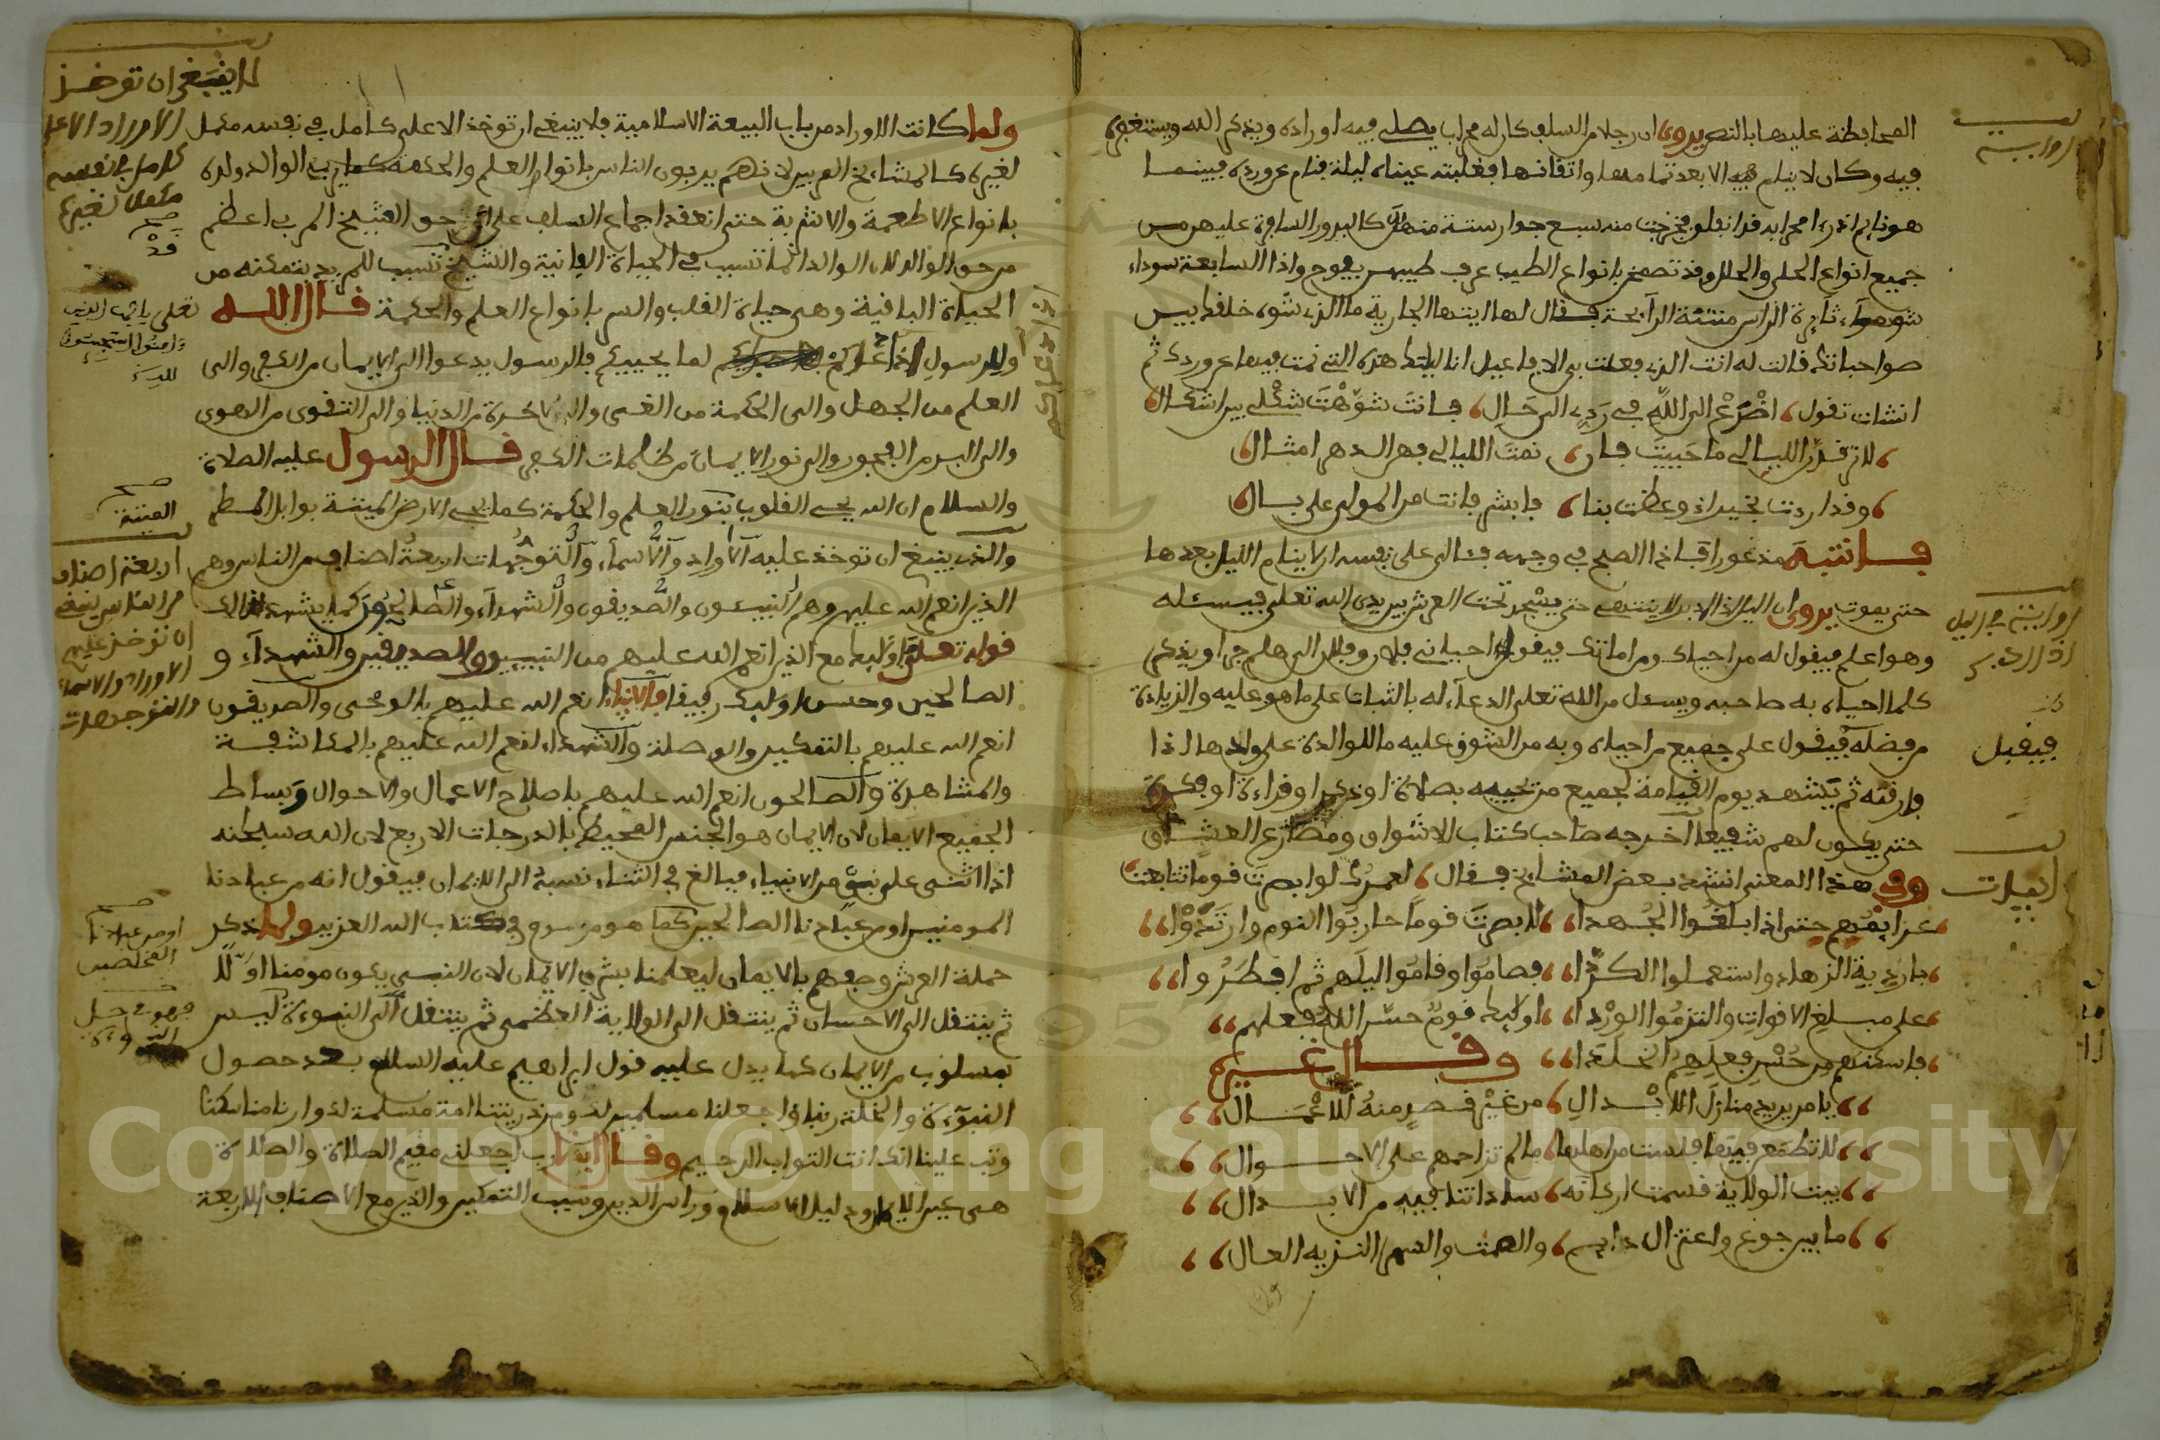 المحافظة عليها بالنص يروى ان رجلا من السلف كان له محراب يصلي فيه اوراده ويذكر الله ويستغفره
فيه وكان لا ينام فيه الا بعد تمامها واتقانها فغلبته عيناه ليلة فنام عن ورده فبينما
هو نايم اذ راى محرابه قد انفلق فخرجت منه سبع جوار ستة منهن كالبدور السافرة عليهن من
جميع انواع الحلي والحلل وقد تضمخن بانواع الطيب عرف طيبهن يفوح واذا السابعة سوداء
شوهاء ثايرة الراس منتنة الرايحة فقال لها ايتها الجارية ما الذي شوه خلقك بين
صواحباتك قالت له انت الذي فعلت بي الافاعيل انا ليلتك هذه التي نمت فيها عن وردك ثم
انشات تقول اضرع الى الله في ردي الى حالي فانت شوهت شكلي بين اشكالي
لا ترقدن الليالي ما حييت فان نمت الليالي فهن الدهر امثالي
وقد اردت بخير اذ وعظت بنا فابشر فانت من المولى على بال
فانتبه مذعورا فاذا الصبح في وجهه فئالى على نفسه ان لا ينام الليل بعدها
حتى يموت يروى ان الليل اذا ادبر لا ينتهي حتى يسجد تحت العرش بين يدي الله تعلى فيسئله
وهو اعلم فيقول له من احياك ومن اماتك فيقول احياني فلان وفلان الى هلم جرا ويذكر
كلما احياه به صاحبه ويسئل من الله تعلى الدعاء له بالثبات على ما هو عليه والزيادة
من فضله فيقول على جميع من احياه وبه من الشوق عليه ما للوالدة على ولدها اذا
فارقته ثم يشهد يوم القيامة لجميع من يحييه بصلاة او ذكر او قراءة او فكرة
حتى يكون لهم شفيعا اخرجه صاحب كتاب الاشواق ومصارع العشاق
وفي هذا المعنى انشد بعض المشايخ فقال لعمرك لو ابصرت قوما تتابعت
عزايمهم حتى اذا بلغوا الجهدا لابصرت قوما حاربوا النوم وارتدوا
باردية الزهاد واستعملوا الكدا فصاموا وقاموا ليلهم ثم افطروا
على مبلغ الاقوات والتزموا الوردا اوليك قوم حسن الله فعلهم
فاسكنهم من حسن فعلهم الخلدا وقال غيره
يا من يريد منازل الابدال من غير قصد منه للاعمال
لا تطمعن فيها فلست من اهلها ما لم تزاحمهم على الاحوال
بيت الولاية قسمت اركانه ساداتنا فيه من الابدال
ما بين جوع واعتزال دايم والصمت والسهر النزيه العال
رواية
رواية في الليل
اذا ادبر
فيقبل
ابيات
ولما كانت الاوراد من باب البيعة الاسلامية فلا ينبغي ان توخذ الا على كامل في نفسه مكمل
لغيره كالمشايخ المربين لانهم يربون الناس بانوار العلم والحكمة كما يربي الوالد ولده
بانواع الاطعمة والاشربة حتى انعقد اجماع السلف على ان حق الشيخ المربي اعظم
من حق الوالد لان الوالد انما تسبب في الحياة الفانية والشيخ تسبب للمريد بتمكنه من
الحياة الباقية وهي حياة القلب والسر بانواع العلم والحكمة قال الله
وللرسول اذا دعاكم لما يحييكم فالرسول يدعوا الى الايمان من الكفر والى
العلم من الجهل والى الحكمة من الغي والى الاخرة من الدنيا والى التقوى من الهوى
والى البر من الفجور والى نور الايمان من ظلمات الكفر قال الرسول عليه الصلاة
والسلام ان الله يحيي القلوب بنور العلم والحكمة كما يحيي الارض الميتة بوابل المطر
والذي ينبغي ان توخذ عليه الاوراد والاسماء والتوجهات اربعة اصناف من الناس وهم
الذين انعم الله عليهم وهم النبيئون والصديقون والشهداء والصالحون كما يشهد لذلك
قوله تعلى فاوليك مع الذين انعم الله عليهم من النبيين والصديقين والشهداء و
الصالحين وحسن اوليك رفيقا فالانبياء انعم الله عليهم بالوحي والصديقون
انعم الله عليهم بالتمكين والوصلة والشهداء انعم الله عليهم بالمكاشفة
والمشاهدة والصالحون انعم الله عليهم باصلاح الاعمال والاحوال وبساط
الجميع الايمان لان الايمان هو الجنس المحيط بالدرجات الاربع لان الله سبحانه
اذا اثنى على نبي من الانبياء فبالغ في الثناء نسبه الى الايمان فيقول انه من عبادنا
المومنين او من عبادنا الصالحين كما هو مسرود في كتاب الله العزيز ولما ذكر
حملة العرش وصفهم بالايمان ليعلمنا بشرف الايمان لان النبي يكون مومنا اولا
ثم ينتقل الى الاحسان ثم ينتقل الى الولاية العظمى ثم ينتقل الى النبوءة ليس
بمسلوب من الايمان كما يدل عليه قول ابراهيم عليه السلام بعد حصول
النبوءة والخلة ربنا واجعلنا مسلمين لك ومن ذريتنا امة مسلمة لك وارنا مناسكنا
وتب علينا انك انت التواب الرحيم وقال ايضا رب اجعلني مقيم الصلاة والصلاة
هي عين الايمان ودليل الاسلام وراس الدين وسبب التمكين والذين مع الاصناف الاربعة
لا ينبغي ان توخذ
الاوراد الا على
كامل في نفسه
مكمل لغيره
صح
تعلى يايها الذين
ءامنوا استجيبوا
لله
صح
الميتة
اربعة اصناف
من الناس ينبغي
ان توخذ عليهم
الاوراد والاسماء
والتوجهات
صح
او من عبادنا
المخلصين
فهو في حال
النبوءة
Copyright © King Saud University
1957